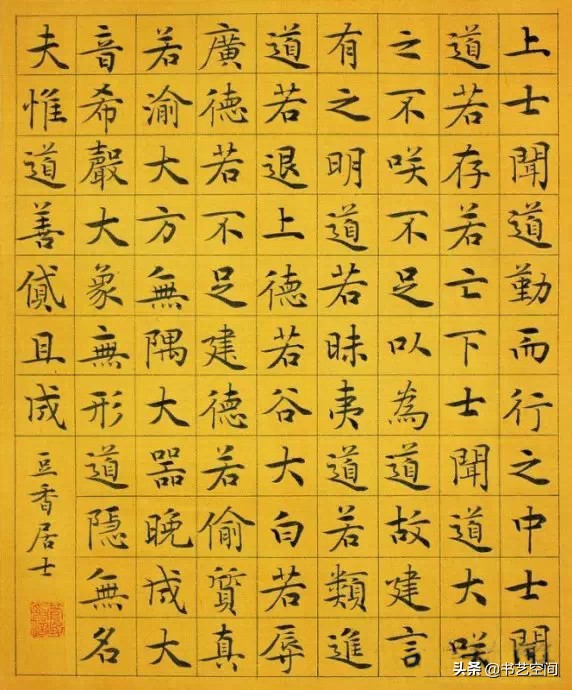 上士聞道勤而行之中士聞
道若存若亡下士聞道大咲
之不咲不足以為道故建言
有之明道若昧夷道若類進
道若退上德若谷大白若辱
廣德若不足建德若偷質真
若渝大方無隅大器晚成大
音希聲大象無形道隱無名
夫惟道善貸且成
豆香居士
头条 @书艺空间